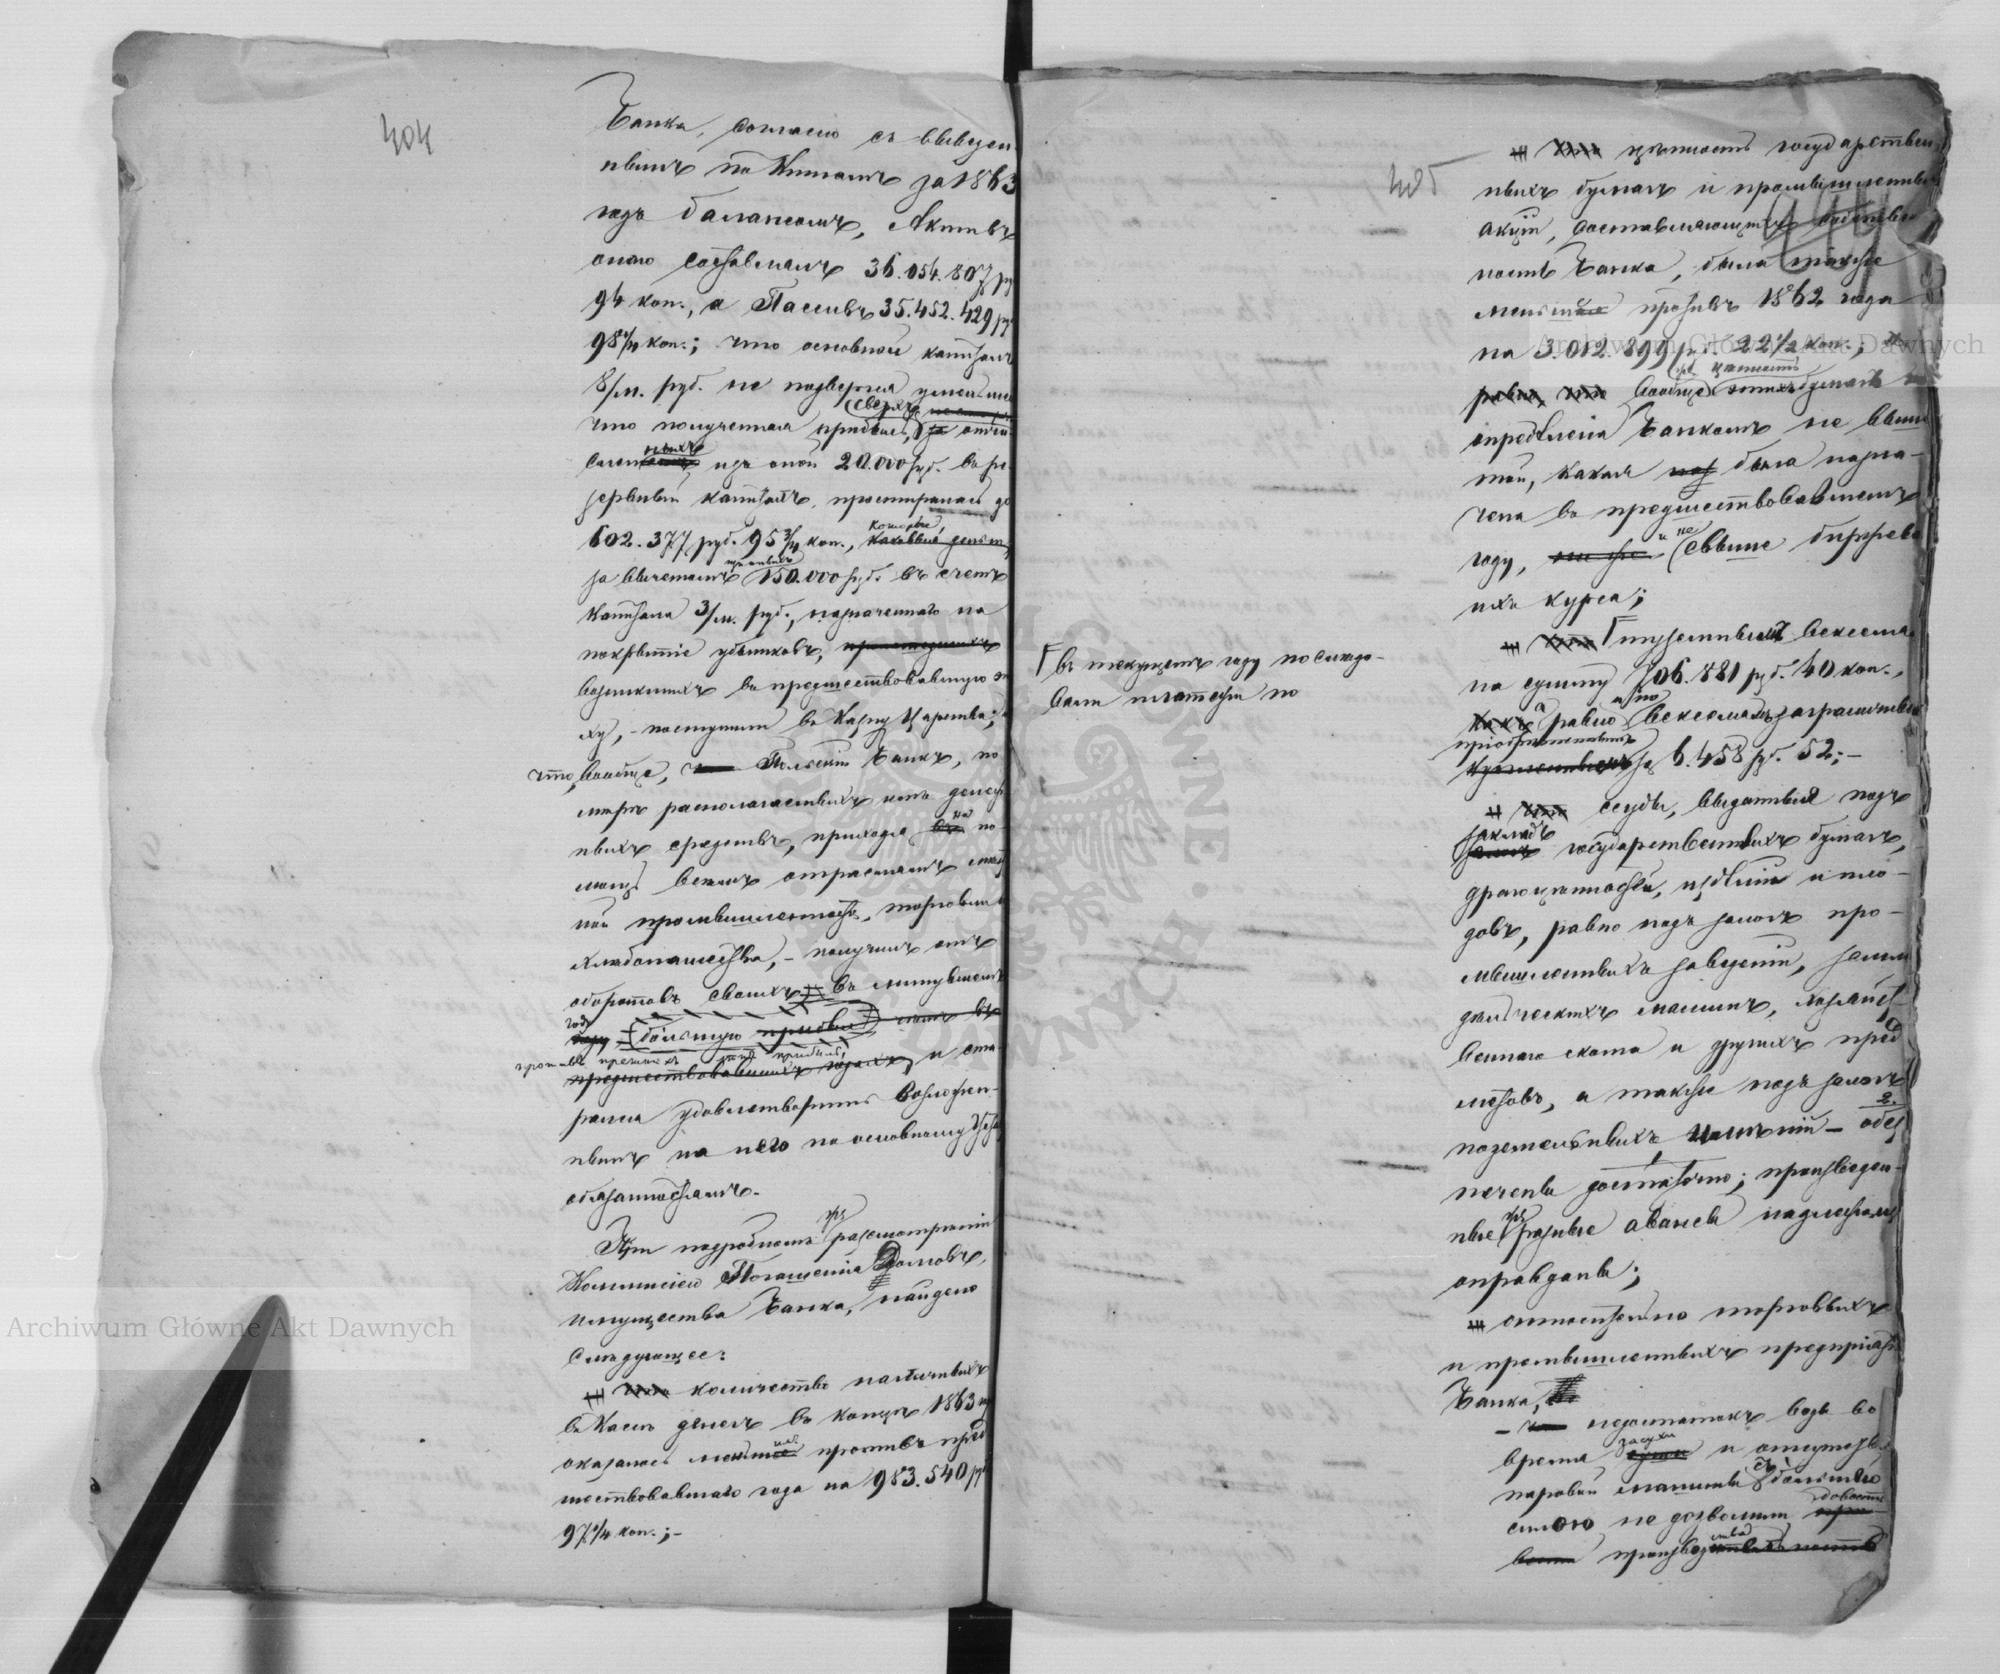 404
Банка, согласно съ выведен-
нымъ по Книгамъ за 1863
годъ балансомъ, Активъ
онаго составлялъ 36.054.807 ру
94 коп., а Пассивъ 35.452.429 ру
98 1/4 коп.; что основной капиталъ
8/м. руб. не подвергся уменьше
что полученная прибыль, сверхъ отчи
сленныхъ изъ оной 20.000 руб. въ ре
зервный капиталъ, простиралась до
602.377 руб. 95 3/4 коп., которые,
за вычетомъ 150.000 руб. въ счетъ
капитала 3/м. руб., назначеннаго на
покрытіе убытковъ, происшедшихъ
возникшихъ въ предшествовавшую эп
ху, – поступили въ Казну Царства;
что, вообще, Польскій Банкъ, по
мѣрѣ располагаемыхъ имъ денеж
ныхъ средствъ, приходя на по
мощь всѣмъ отраслямъ
ной промышленности, торговли и
хлѣбопашества, – получилъ отъ
оборотовъ своихъ въ минувшемъ
году большую прибыль
противъ прежнихъ прибыль,
предшествовавшихъ годахъ, и ста
рался удовлетворить возложен-
нымъ на него по основному
обязанностямъ.
При подробномъ разсмотрѣніи
Коммисіею Погашенія Долговъ,
имущества Банка, найдено
слѣдующее:
количество наличныхъ
въ Кассѣ денегъ въ концѣ 1863 го
оказалось противъ пред
шествовавшаго года на 983.540 руб
97 1/4 коп.; –
405
цѣнность государствен
ныхъ бумагъ и промышленны
акцій, составляющихъ собствен
ность Банка, была также
противъ 1862 года
на 3.012.899 руб. 22 1/2 коп.;
цѣнность
вообще этихъ бумагъ
опредѣлена Банкомъ не выш
той, какая была назна-
чена въ предшествовавшемъ
году, и не свыше биржева
ихъ курса;
туземнымъ векселя
┌ въ текущемъ году послѣдо-
вали платежи по
на сумму 706.881 руб. 40 коп.,
а равно и по векселямъ заграничны
пріобрѣтеннымъ
за 6.458 руб. 52; –
ссуды, выданныя подъ
закладъ
государственныхъ бумагъ,
драгоцѣнностей, издѣлій и пло-
довъ, равно подъ залогъ про-
мышленныхъ заведеній, земле
дѣльческихъ машинъ, хозяйст
веннаго скота и другихъ пред
метовъ, а также подъ залогъ
поземельныхъ имѣній – обез
печены достаточно; произведен-
ные разные авансы надлежаще
оправданы;
относительно торговыхъ
и промышленныхъ предпріяті
Банка,
– недостатокъ воды во
время засухи и отсутствіе
паровой машины съ большею
силою не дозволили